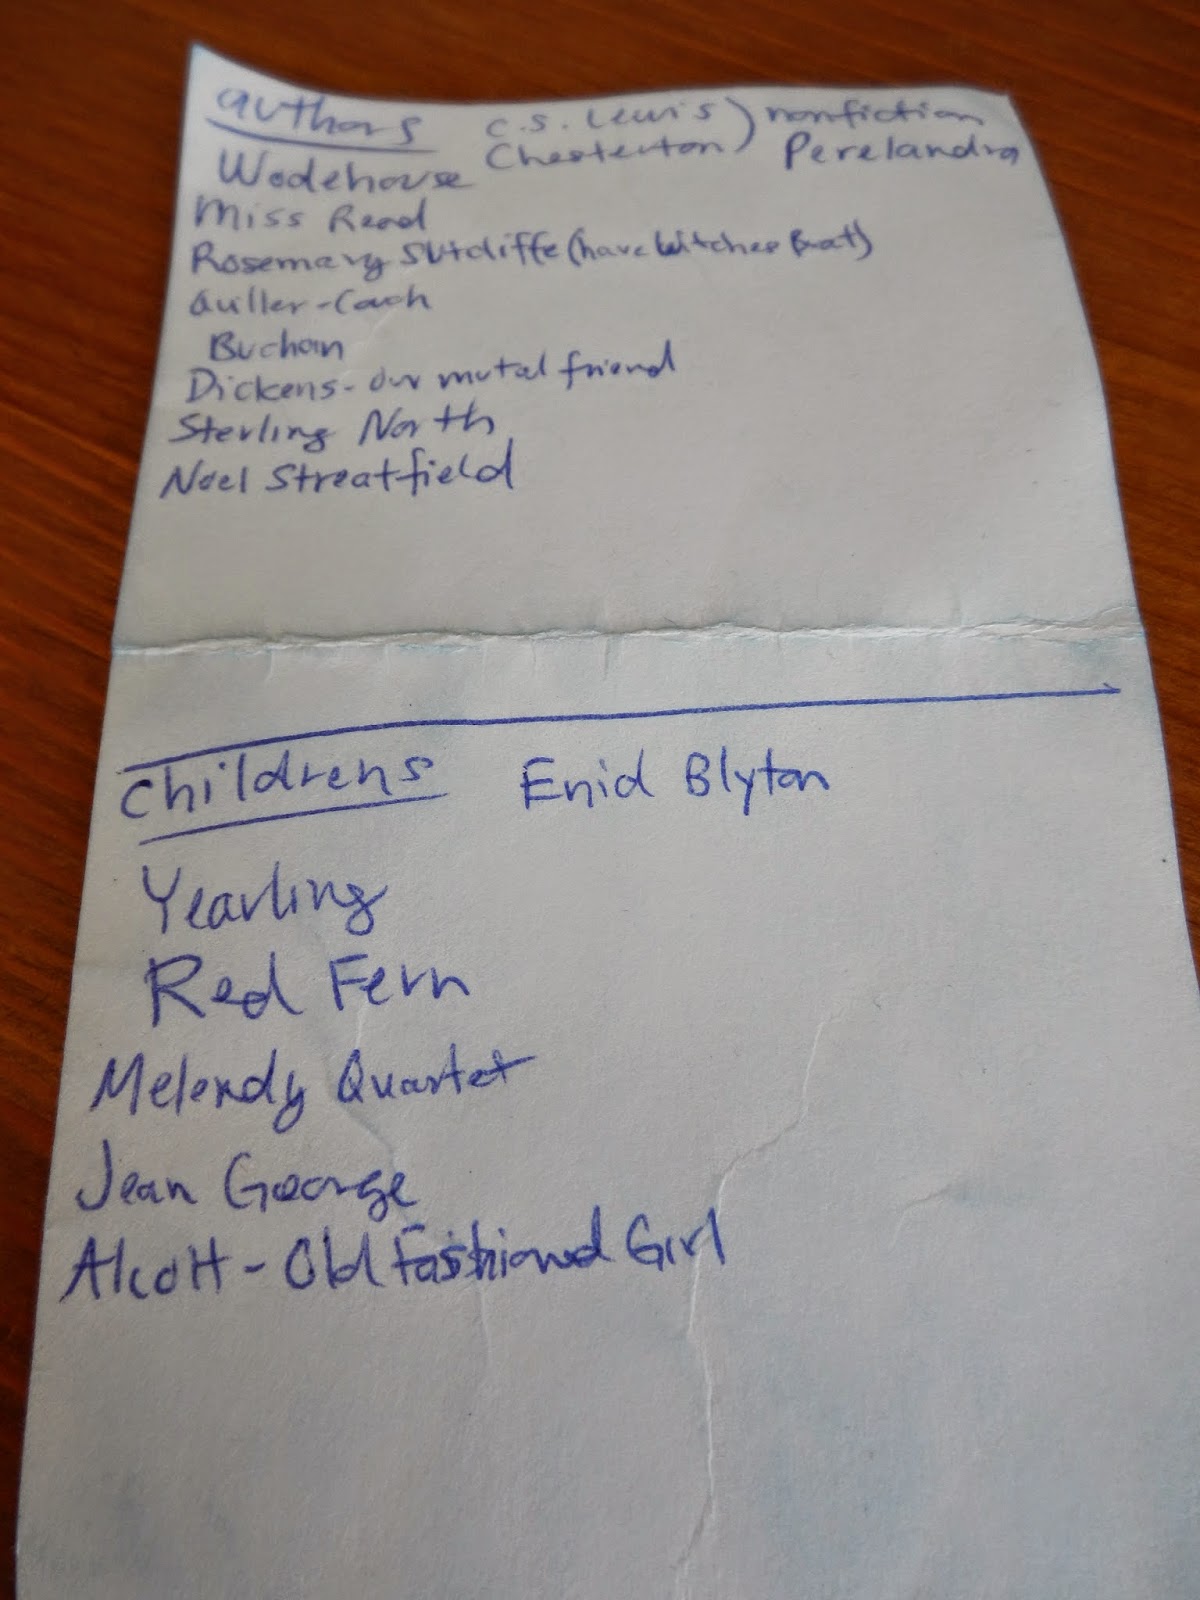 authors
C.S. Lewis) nonfiction
Chesterton) Perelandra
Wodehouse
Miss Read
Rosemary Sutcliffe (have Witches Brat)
Quiller-Couch
Buchan
Dickens - Our mutal friend
Sterling North
Noel Streatfield
Childrens Enid Blyton
Yearling
Red Fern
Melendy Quartet
Jean George
Alcott - Old Fashioned Girl